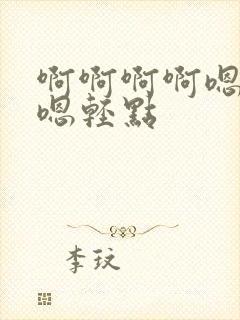 啊啊啊啊嗯
嗯轻點
李玟